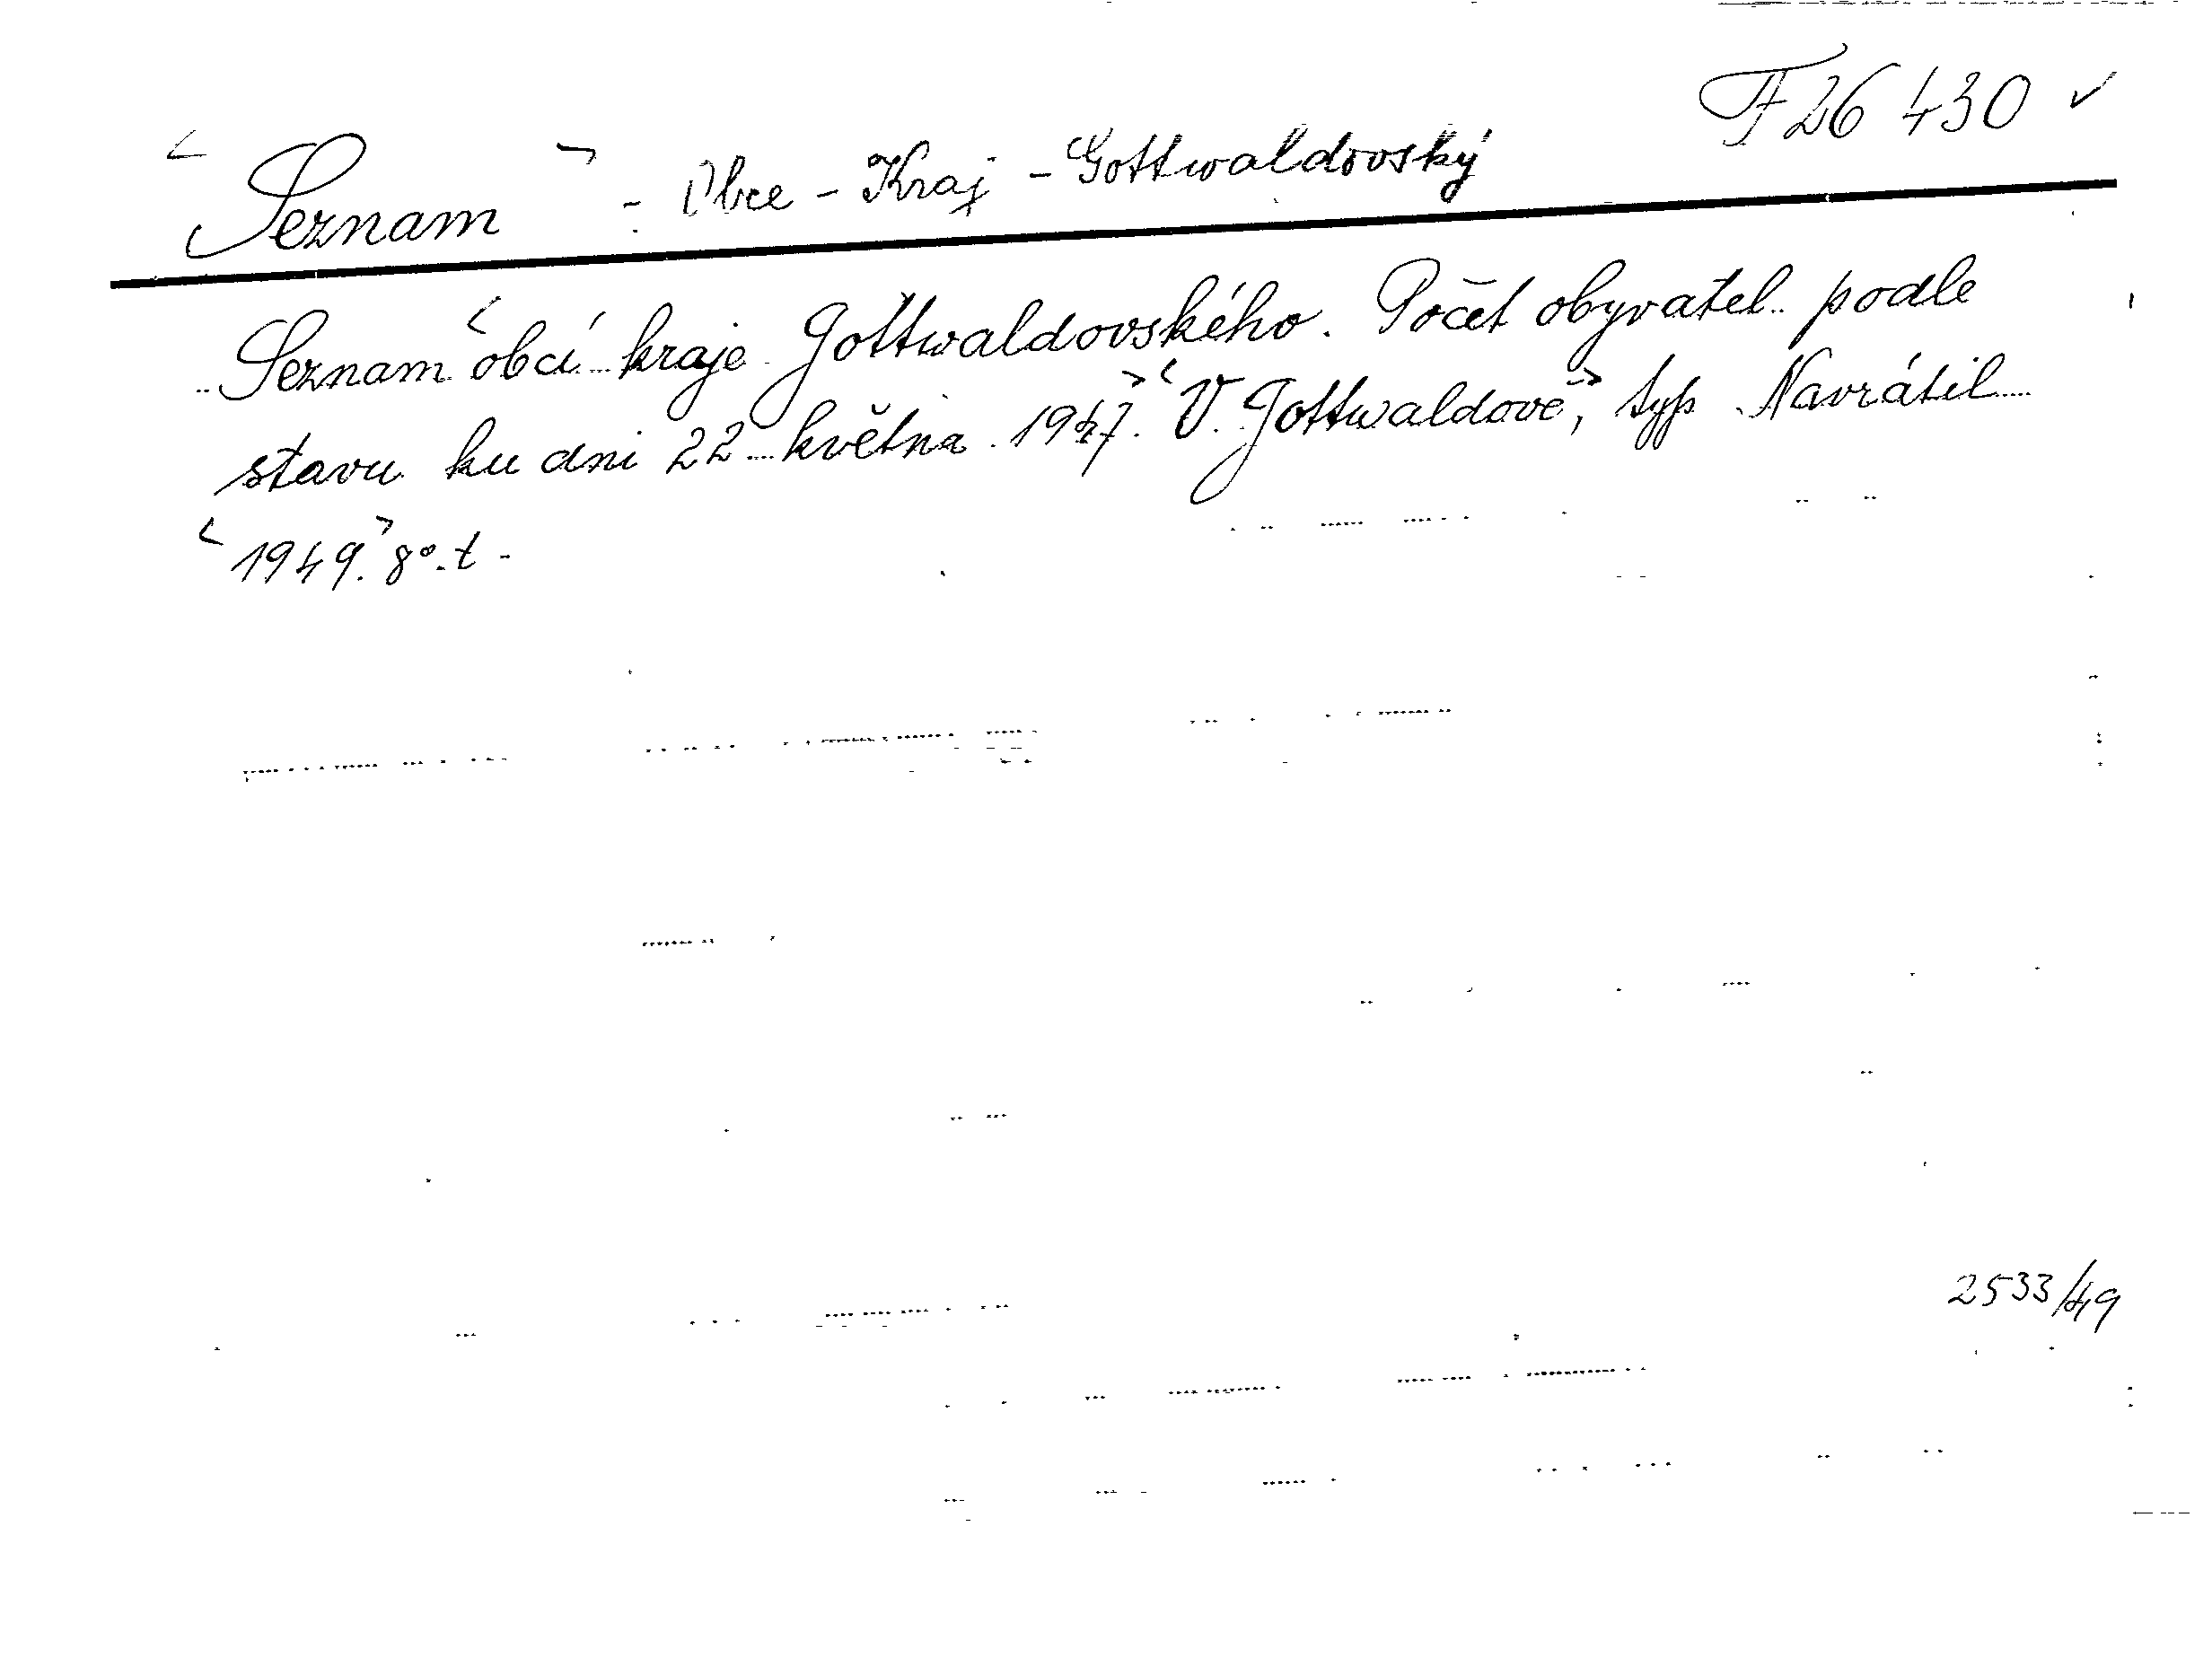 F 26 430 ✓
<Seznam> - Obce - Kraj - Gottwaldovský
Seznam <obcí kraje Gottwaldovského. Počet obyvatel podle
stavu ku dni 22 května 1947.> <V Gottwaldově>, typ Navrátil
<1949.> 8°. t -
2533/49